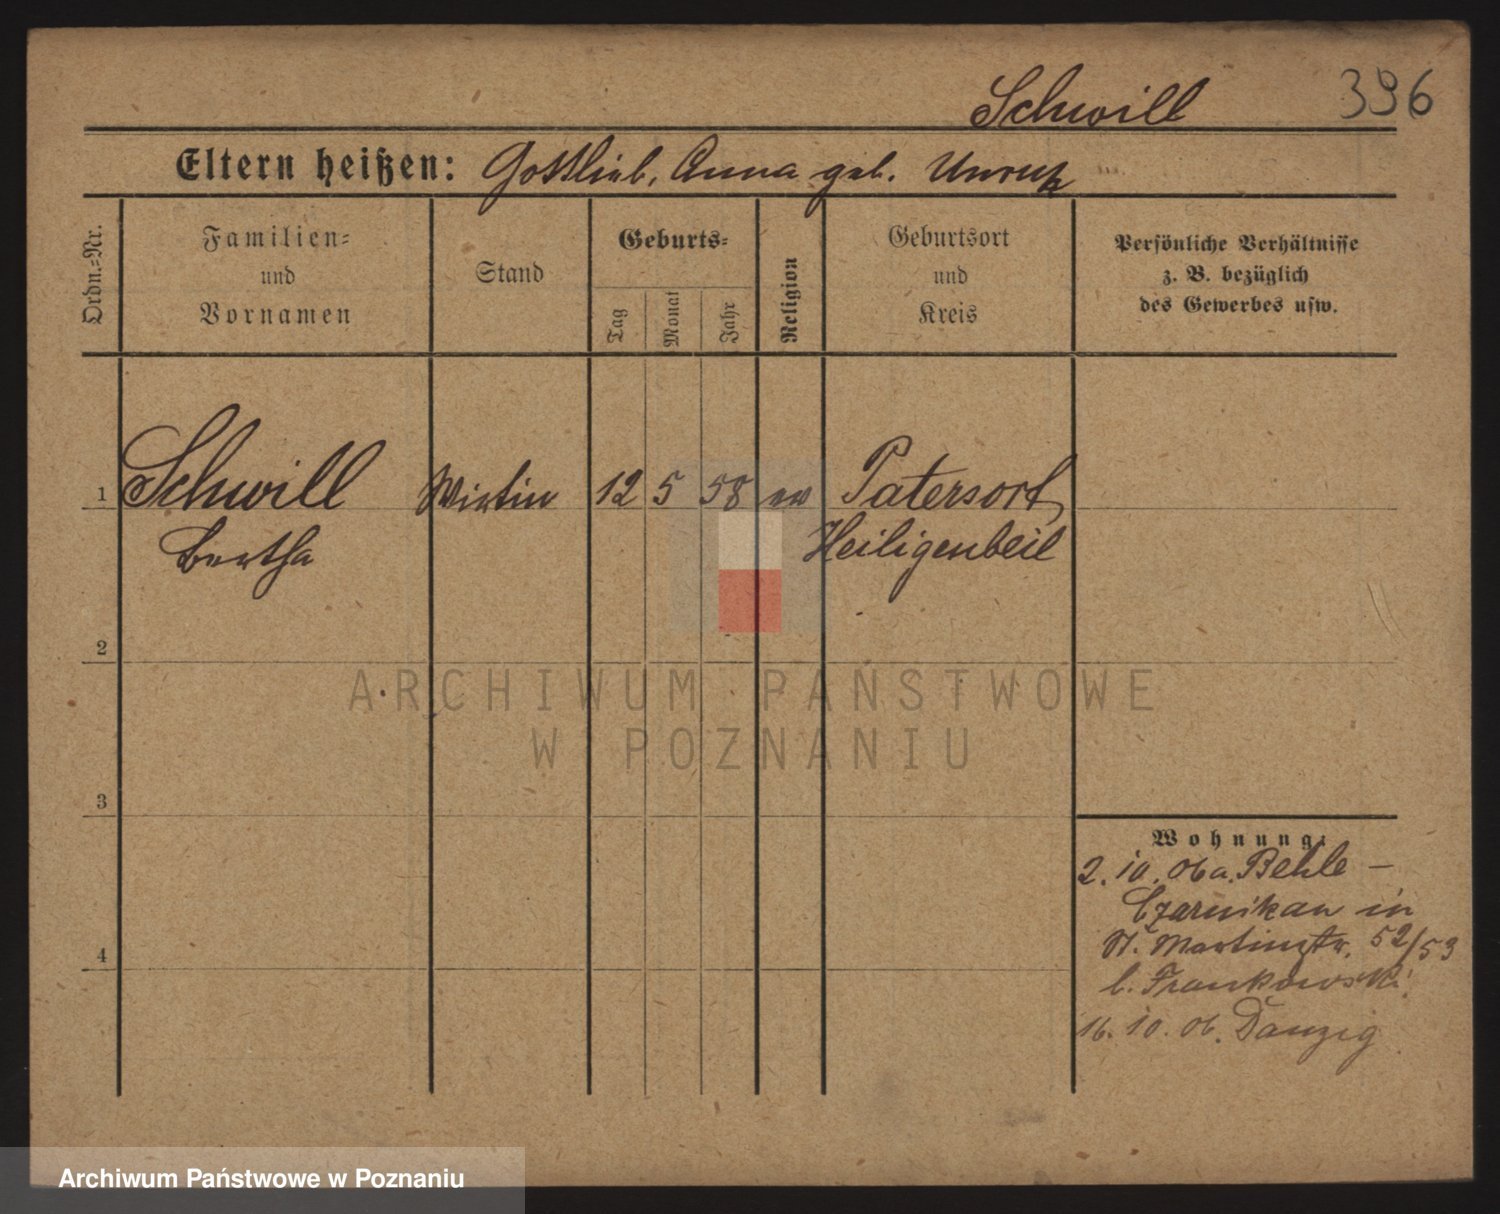 Schwill 396
Eltern heißen: Gottlieb, Anna geb. Unruh
Ordn.-Nr.
Familien-
und
Vornamen
Stand
Geburts-
Tag
Monat
Jahr
Religion
Geburtsort
und
Kreis
Persönliche Verhältnisse
z. B. bezüglich
des Gewerbes usw.
1 Schwill Wirtin 12 5 58 ev Patersort
Bertha Heiligenbeil
2
3
4
Wohnung:
2. 10. 06 a. Behle –
Czarnikau in
St. Martinstr. 52/53
b. Frankowski.
16. 10. 06. Danzig
ARCHIWUM PAŃSTWOWE
W POZNANIU
Archiwum Państwowe w Poznaniu